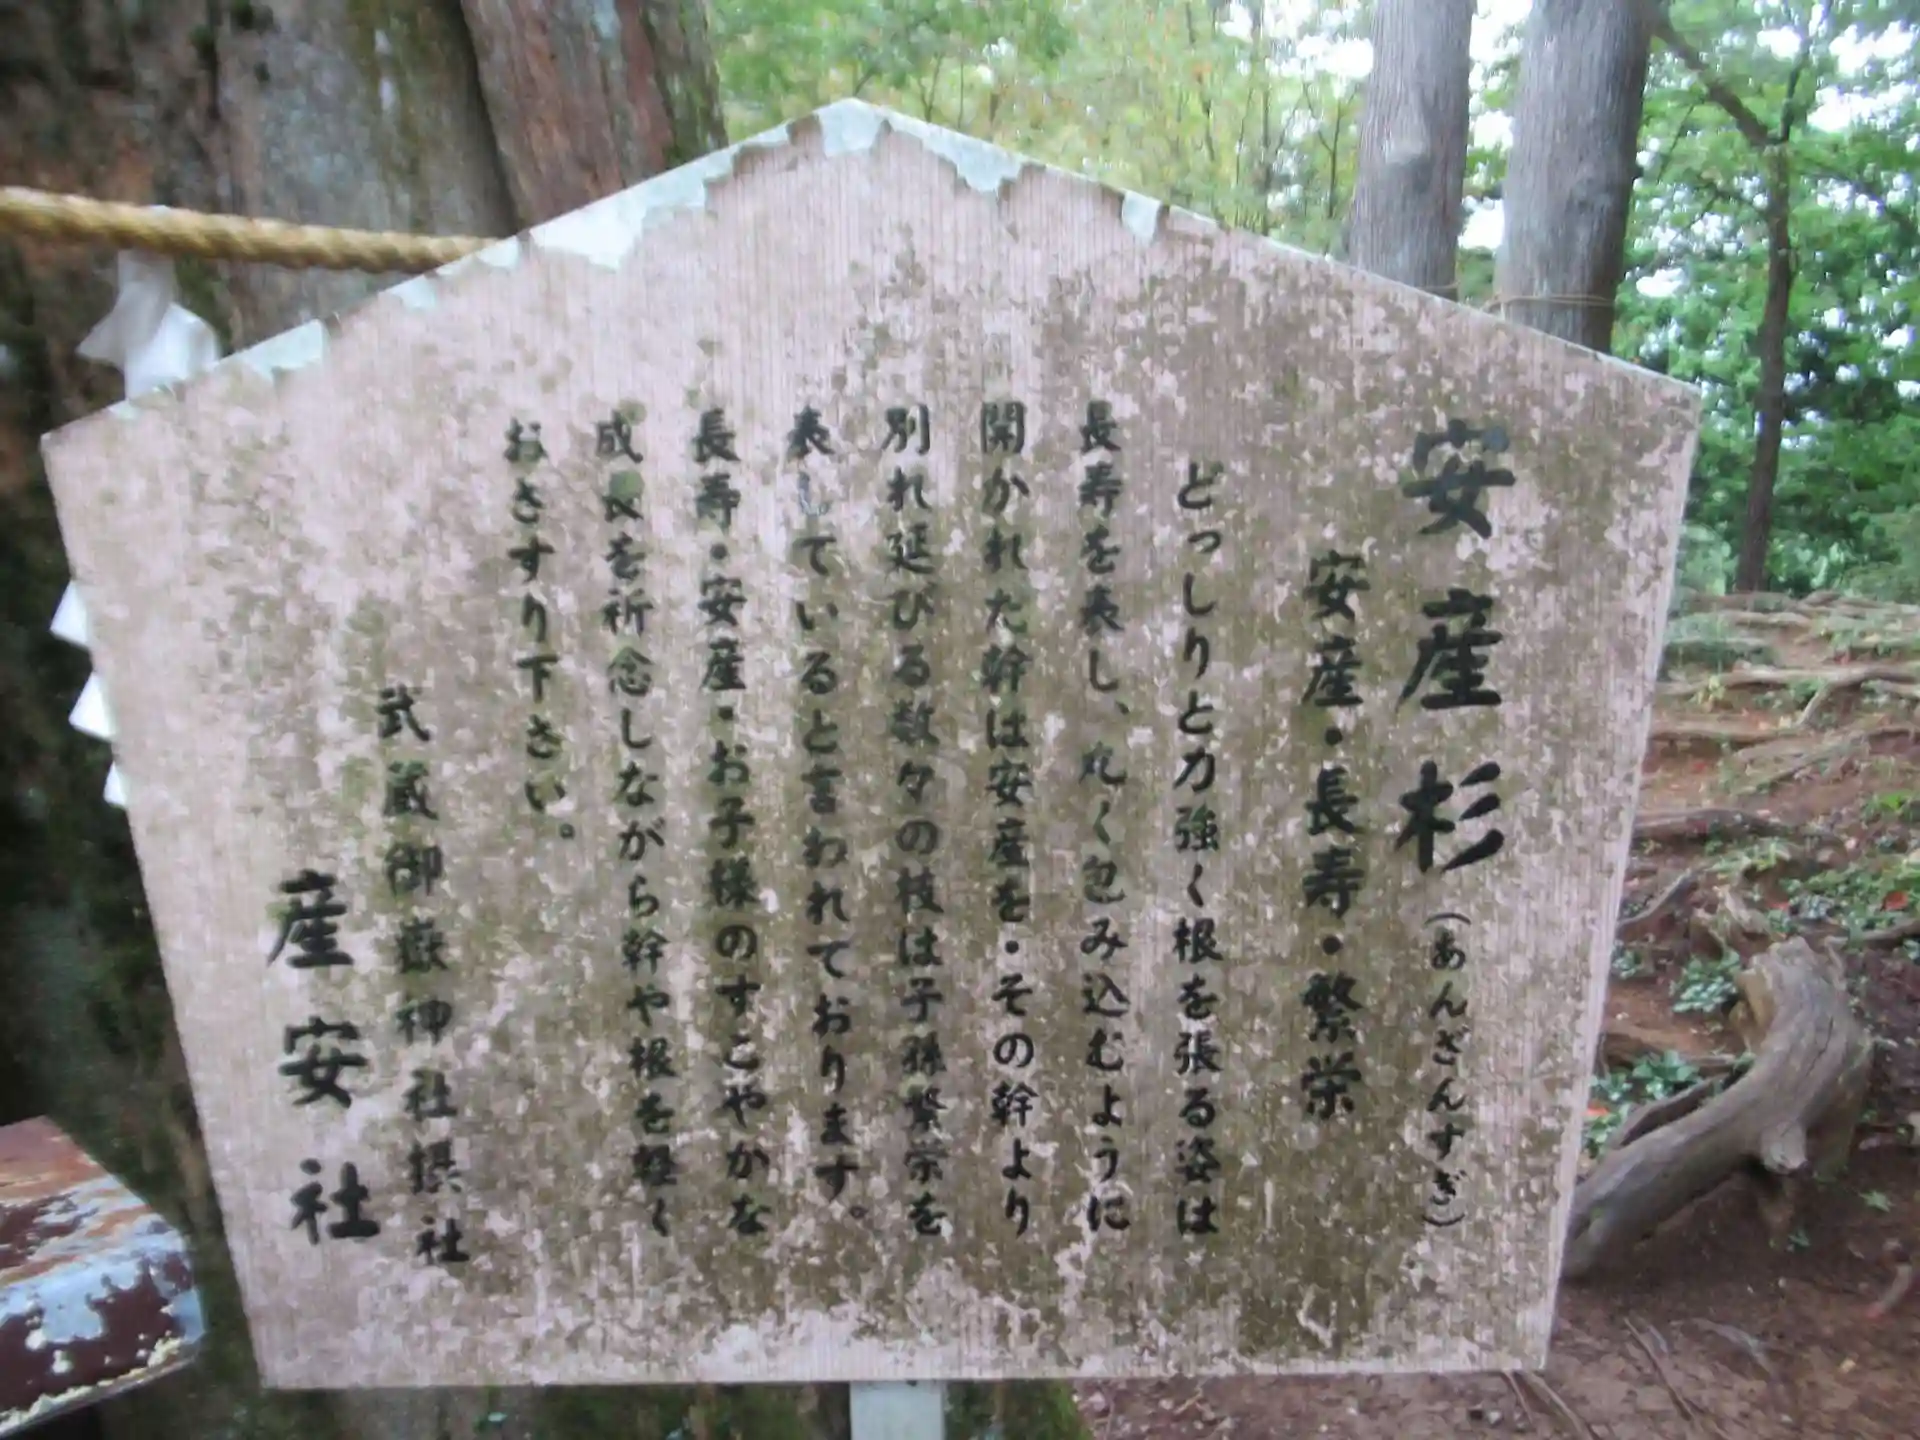 安産杉(あんざんすぎ)
安産・長寿・繁栄
どっしりと力強く根を張る姿は
長寿を表し、丸く包み込むように
開かれた幹は安産を・その幹より
別れ延びる数々の枝は子孫繁栄を
表していると言われております。
長寿・安産・お子様のすこやかな
成长を祈念しながら幹や根を軽く
おさすり下さい。
武蔵御嶽神社摂社
産安社